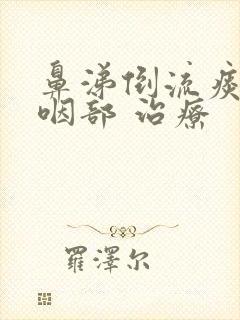 鼻涕倒流痰
咽部 治療
羅澤尔